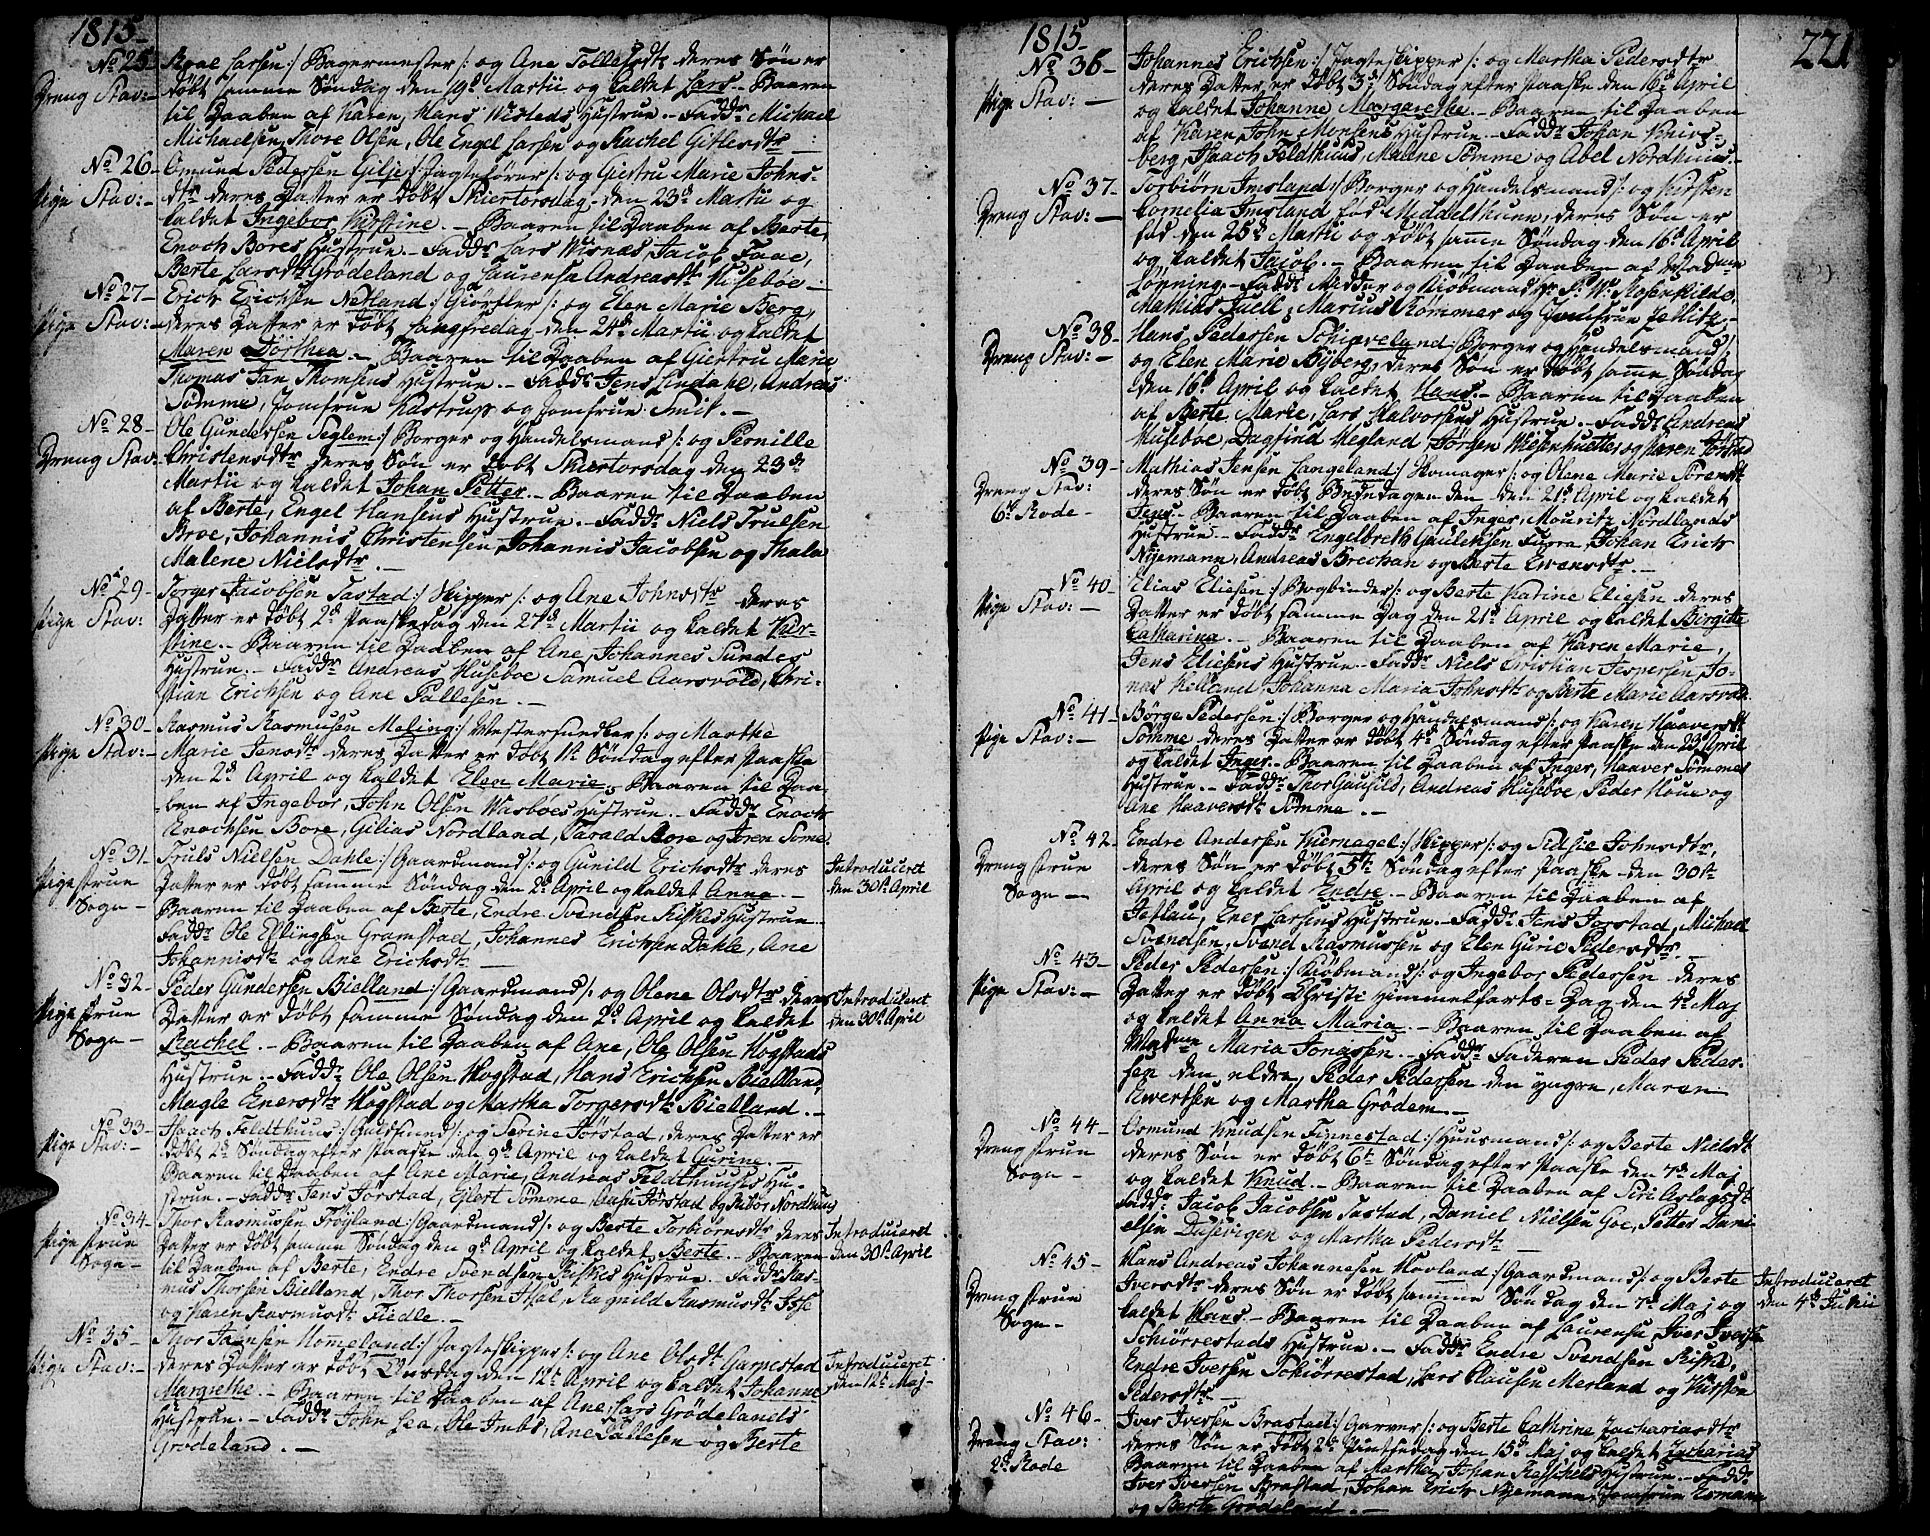 1815
No 25
Dreng Stav:
Roal Larsen :/ Bagermester /: og Ane Tollefsdtr deres Søn er
døbt samme Søndag den 19d Martii og kaldet Lars. Baaren
til Daaben af Karen, Hans Wisteds Hustrue. Faddr Michael
Michaelsen, Thore Olsen, Ole Engel Larsen og Rachel Gitlesdtr
No 26
Pige Stav:
Omund Pedersen Gilje :/ Jagtefører /: og Giertru Marie Johns-
dtr deres Datter er døbt Skiertorsdag den 23d Martii og
kaldet Ingebor Kirstine. Baaren til Daaben af Berte,
Enoch Bores Hustrue. Faddr Lars Wisnæs, Jacob Faae,
Berte Larsdtr Grødeland og Laurensa Andreasdtr Husebøe
No 27
Pige Stav:
Erich Erichsen Netland :/ Giørtler /: og Elen Marie Berg,
deres Datter er døbt Langfredag den 24d Martii og kaldet
Maren Dorthea. Baaren til Daaben af Giertru Marie
Thomas Jan Thomsens Hustrue. Faddr Jens Lindahl, Andreas
Sømme, Jomfrue Kastrup og Jomfrue Smit.
No 28
Dreng Stav:
Ole Gundersen Seglem :/ Borger og Handelsmand /: og Pernille
Christensdtr deres Søn er døbt Skiertorsdag den 23d
Martii og kaldet Johan Petter. Baaren til Daaben
af Berte, Engel Hansens Hustrue. Faddr Niels Trulsen
Broe, Johannis Christensen, Johannis Jacobsen og Thala
Malene Nielsdtr.
No 29
Pige Stav:
Torger Jacobsen Tastad :/ Skipper /: og Ane Johnsdtr deres
Datter er døbt 2d Paaskedag den 27d Martii og kaldet Kir-
stine. Baaren til Daaben af Ane, Johannes Sundes
Hustrue. Faddr Andreas Huseboe Samuel Aarsvold, Chri-
stian Erichsen og Ane Tallesen.
No 30
Pige Stav:
Rasmus Rasmusen Meling :/ /: og Marthe
Marie Jensdtr deres Datter er døbt 1t Søndag efter Paaske
den 2d April og kaldet Elen Marie. Baaren til Daa-
ben af Ingebor, John Olsen Wasboes Hustrue. Faddr Enoch
Enochsen Bore, Gilias Nordland, Tarald Bore og Iren Some.
No 31
Pige Frue
Sogn
Truls Nielsen Dahle :/ Gaardmand /: og Gunild Erichsdtr deres
Datter er døbt samme Søndag den 2d April og kaldet Anna.
Baaren til Daaben af Berte, Endre Svendsen Riskes Hustrue.
Faddr Ole Eslingsen Gramstad, Johannes Erichsen Dahle, Ane
Johanisdtr og Ane Erichsdtr
Introduceret
den 30t April
No 32
Pige Frue
Sogn
Peder Gundersen Bielland :/ Gaardmand /: og Olene Olsdtr deres
Datter er døbt samme Søndag den 2d April og kaldet
Rachel. Baaren til Daaben af Ane, Ole Olsen Hogstads
Hustrue. Faddr Ole Olsen Hogstad, Hans Erichsen Bielland,
Magle Enersdtr Hogstad og Martha Torgersdtr Bielland.
Introduceret
den 30t April
No 33
Pige Stav:
Isaach Feldthuus :/ Guldsmed /: og Severine Jørstad, deres Datter er
døbt 2d Søndag efter Paaske den 9d April og kaldet Gurine.
Baaren til Daaben af Ane Marie, Andreas Feldthuuses Hu-
strue. Faddr Jens Jørstad, Ejlert Sømme, Aase Jørstad og Nordhuus
No 34
Pige Frue
Sogn
Thor Rasmussen Frøyland :/ Gaardmand /: og Berte Torbiørnsdtr deres
Datter er døbt samme Søndag den 9d April og kaldet Berte. Baaren
til Daaben af Berte, Endre Svendsen Riskes Hustrue. Faddr Ras-
mus Thorsen Bielland, Thor Thorsen Asal, Ragnild Rasmusdtr Isse
og Karen Rasmusdtr Fiedle.
Introduceret
den 30t April
No 35
Pige Stav:
Thor Tørresen Homeland :/ Jagteskipper /: og Ane Olsdtr Garpestad
deres Datter er døbt Onsdag den 12t April og kaldet Johanne
Margrethe. Baaren til Daaben af Ane, Lars Grødelands
Hustrue. Faddr John Lea, Ole Imbs, Ane Tallesen og Berte
Grødeland.
Introduceret
den 12t Maj
1815
221
No 36
Pige Stav:
Johannes Erichsen :/ Jagteskipper /: og Martha Pedersdtr
deres Datter er døbt 3d Søndag efter Paaske den 16d April
og kaldet Johanne Margarethe. Baaren til Daaben
af Karen, John Monsens Hustrue. Faddr Johan Knivs-
berg, Isaach Feldthuus, Malene Sømme og Abel Nordhuus.
No 37
Dreng Stav:
Torbiørn Imsland :/ Borger og Handelsmand /: og Kirsten
Cornelia Imsland fød Middelthuun, deres Søn er
fød den 25d Martii og døbt samme Søndag den 16d April
og kaldet Jacob. Baaren til Daaben af Madme
Lønning. Faddr Medder og Kiøbmændr P: W: Rosenkilde,
Mathias Kall, Marius Rømmer og Jomfrue Jellitz.
No 38
Dreng Stav:
Hans Pedersen Schiæveland :/ Borger og Handelsmand /:
og Elen Marie Byberg, deres Søn er døbt samme Søndag
den 16d April og kaldet Hans. Baaren til Daaben
af Berte Marie, Lars Halvorsens Hustrue. Faddr Andreas
Huseboe, Dagfind Megland, Jørgen Wiesenhuetter og Karen Jørstad
No 39
Dreng Stav:
6t Rode
Mathias Jensen Langeland :/ Skomager /: og Olene Marie Sørensdtr
deres Søn er døbt Bededagen den 21d April og kaldet
Jens. Baaren til Daaben af Inger, Mouritz Nordlands
Hustrue. Faddr Engelbreth Gaulensen Fugra, Johan Erich
Nyemann, Andreas Brechan og Berte Ewensdtr.
No 40
Pige Stav:
Elias Eliesen :/ Bogbinder /: og Berte Katrine Eliesen deres
Datter er døbt samme Dag den 21d April og kaldet Birgitte
Catharina. Baaren til Daaben af Karen Marie,
Jens Eliesens Hustrue. Faddr Niels Christian Jespersen, Jo-
nas Helland, Johanna Maria Johnsdtr og Berte Marie Aarsvold.
No 41
Pige Stav:
Børge Pedersen :/ Borger og Handelsmand /: og Karen Haaversdtr
Sømme deres Datter er døbt 4d Søndag efter Paaske den 23d April
og kaldet Inger. Baaren til Daaben af Inger, Haaver Sømmes
Hustrue. Faddr Thor Gausild, Andreas Huseboe, Peder Houe og
Ane Haaversdtr Sømme.
No 42
Dreng Frue
Sogn
Endre Andersen Kiernagel :/ Skipper /: og Sidsie Johnsdtr,
deres Søn er døbt 5t Søndag efter Paaske den 30t
April og kaldet Endre. Baaren til Daaben af
Jetlau, Ener Larsens Hustrue. Faddr Jens Jørstad, Michael
Svendsen, Svend Rasmussen og Elen Gurie Pedersdtr.
No 43
Pige Stav:
Peder Pedersen :/ Kiøbmand /: og Ingebor Pedersen deres
Datter er døbt Christi Himmelfarts-Dag den 4d Maj
og kaldet Anna Maria. Baaren til Daaben af
Madme Maria Jonassen. Faddr Faderen Peder Peder-
sen den eldre, Peder Pedersen den yngre, Maren
Ewertsen og Martha Grødem.
No 44
Dreng Frue
Sogn
Osmund Knudsen Finnestad :/ Huusmand /: og Berte Nielsdtr
deres Søn er døbt 6t Søndag efter Paaske den 7d Maj
og kaldet Knud. Baaren til Daaben af Siri Aslagsdtr
Faddr Jacob Jacobsen Tastad, Daniel Nielsen Goe, Petter Dani-
elsen Dusevigen og Martha Pedersdtr
No 45
Dreng Frue
Sogn
Hans Andreas Johannesen Hovland :/ Gaardmand /: og Berte
Iversdtr deres Søn er døbt samme Søndag den 7d Maj og
kaldet Hans. Baaren til Daaben af Laurensa, Iver Iversen
Schiørrestads Hustrue. Faddr Endre Svendsen Riske,
Endre Iversen Schiørrestad, Lars Clausen Merland og Kirsten
Pedersdtr
Introduceret
den 4d Junii
No 46
Dreng Stav:
2d Rode
Iver Iversen Brastad :/ Garver /: og Berte Cathrine Zachariasdtr
deres Søn er døbt 2d Pintsedag den 15d Maj og kaldet Zacharias
Baaren til Daaben af Martha, Johan Resschels Hustrue. Faddr
Iver Iversen Brastad, Johan Erich Nyemann, Jomfrue Esmann
og Berte Grødeland.